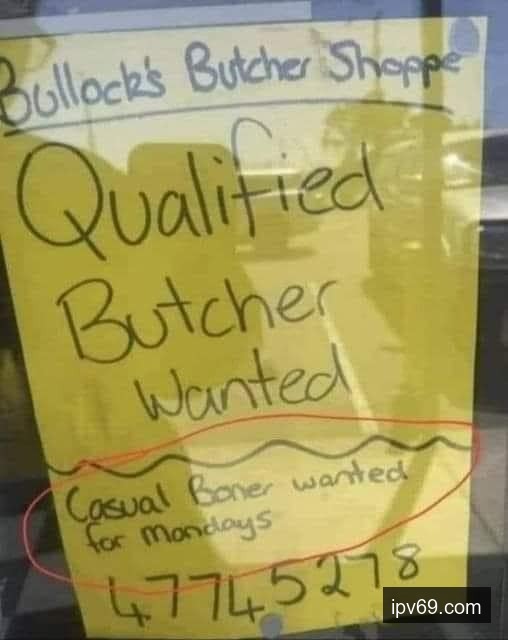 Bullock's Butcher Shoppe
Qualified
Butcher
Wanted
Casual Boner wanted
for Mondays
47745278
ipv69.com